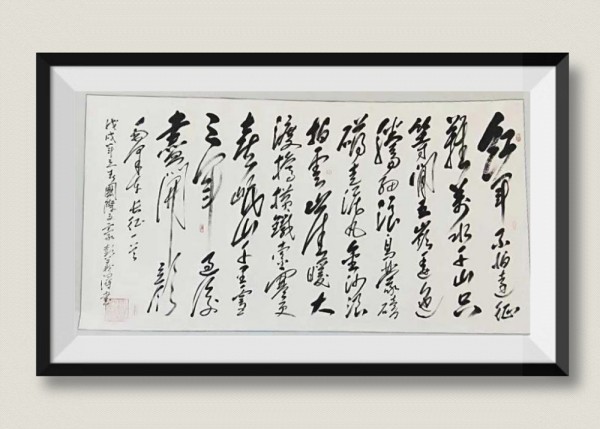 红军不怕远征
難萬水千山只
等闲五嶺逶迤
腾细浪乌蒙磅
礴走泥丸金沙浪
拍雲崖暖大
渡橋横鐵索寒更
喜岷山千里雪
三军过后
盡開颜
毛泽东长征一首
戊戌年